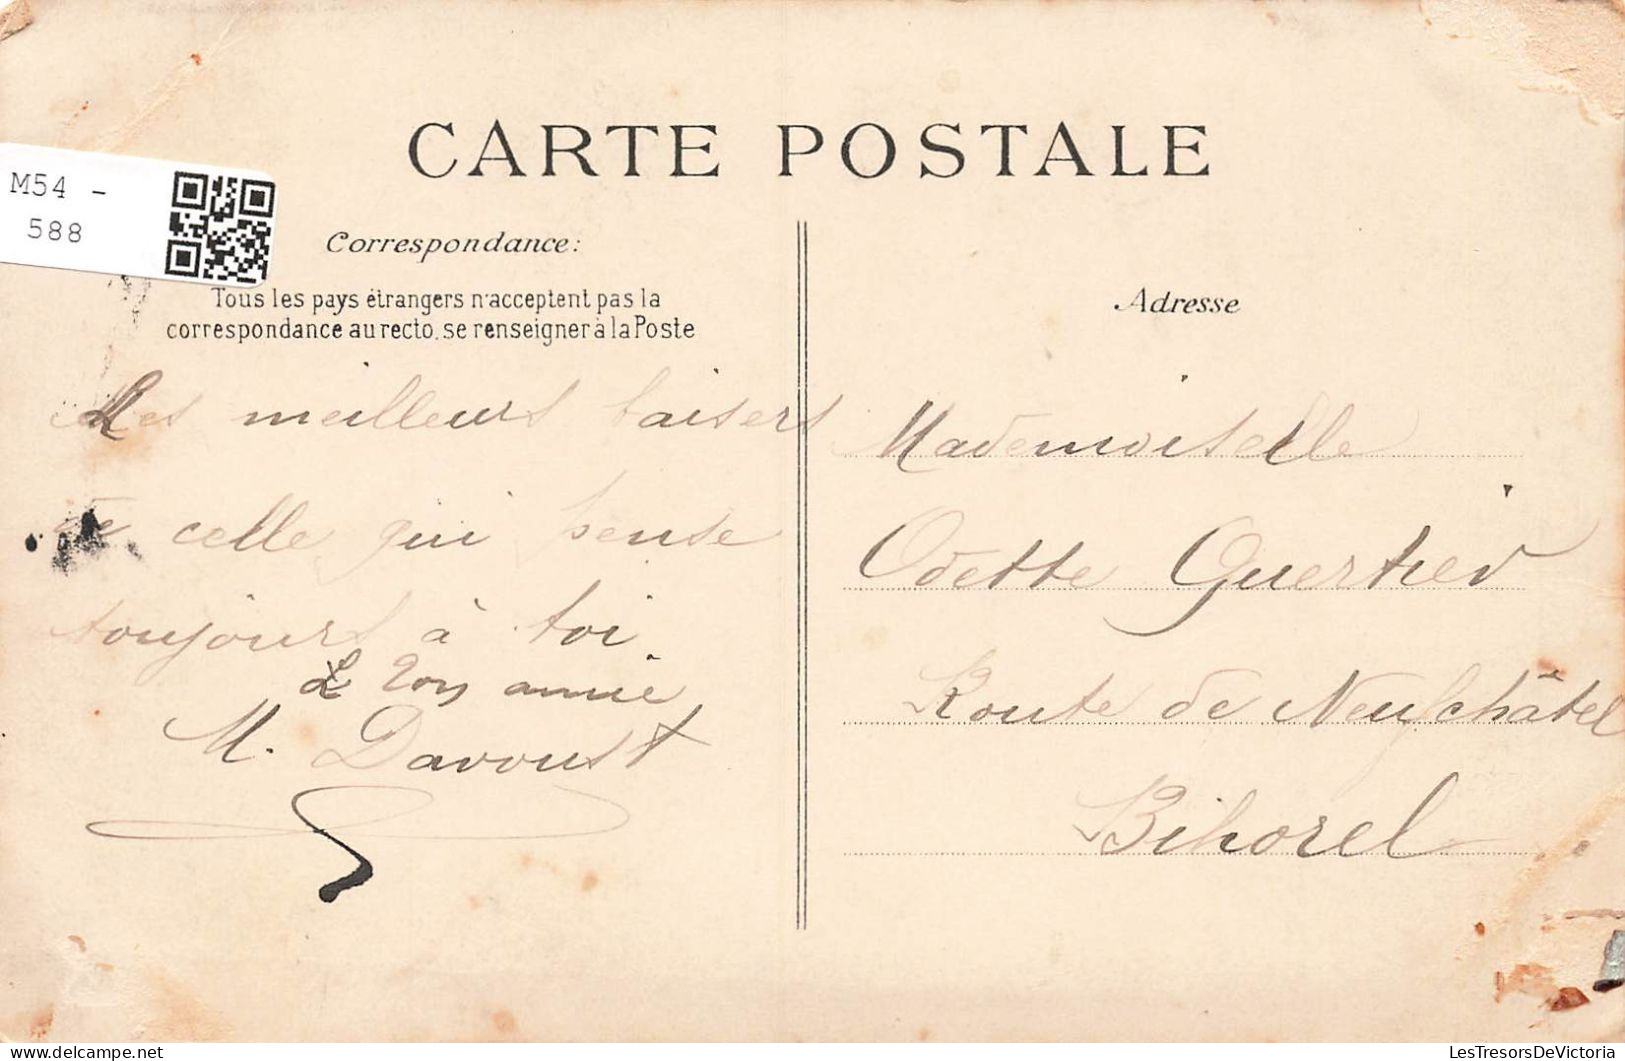 CARTE POSTALE
M54 -
588
Correspondance:
Tous les pays étrangers n'acceptent pas la
correspondance au recto, se renseigner à la Poste
Les meilleurs baisers
de celle qui pense
toujours à toi.
Ton amie
M. Davoust
Adresse
Mademoiselle
Odette Quertier
Route de Neufchâtel
Bihorel
LesTresorsDeVictoria.com